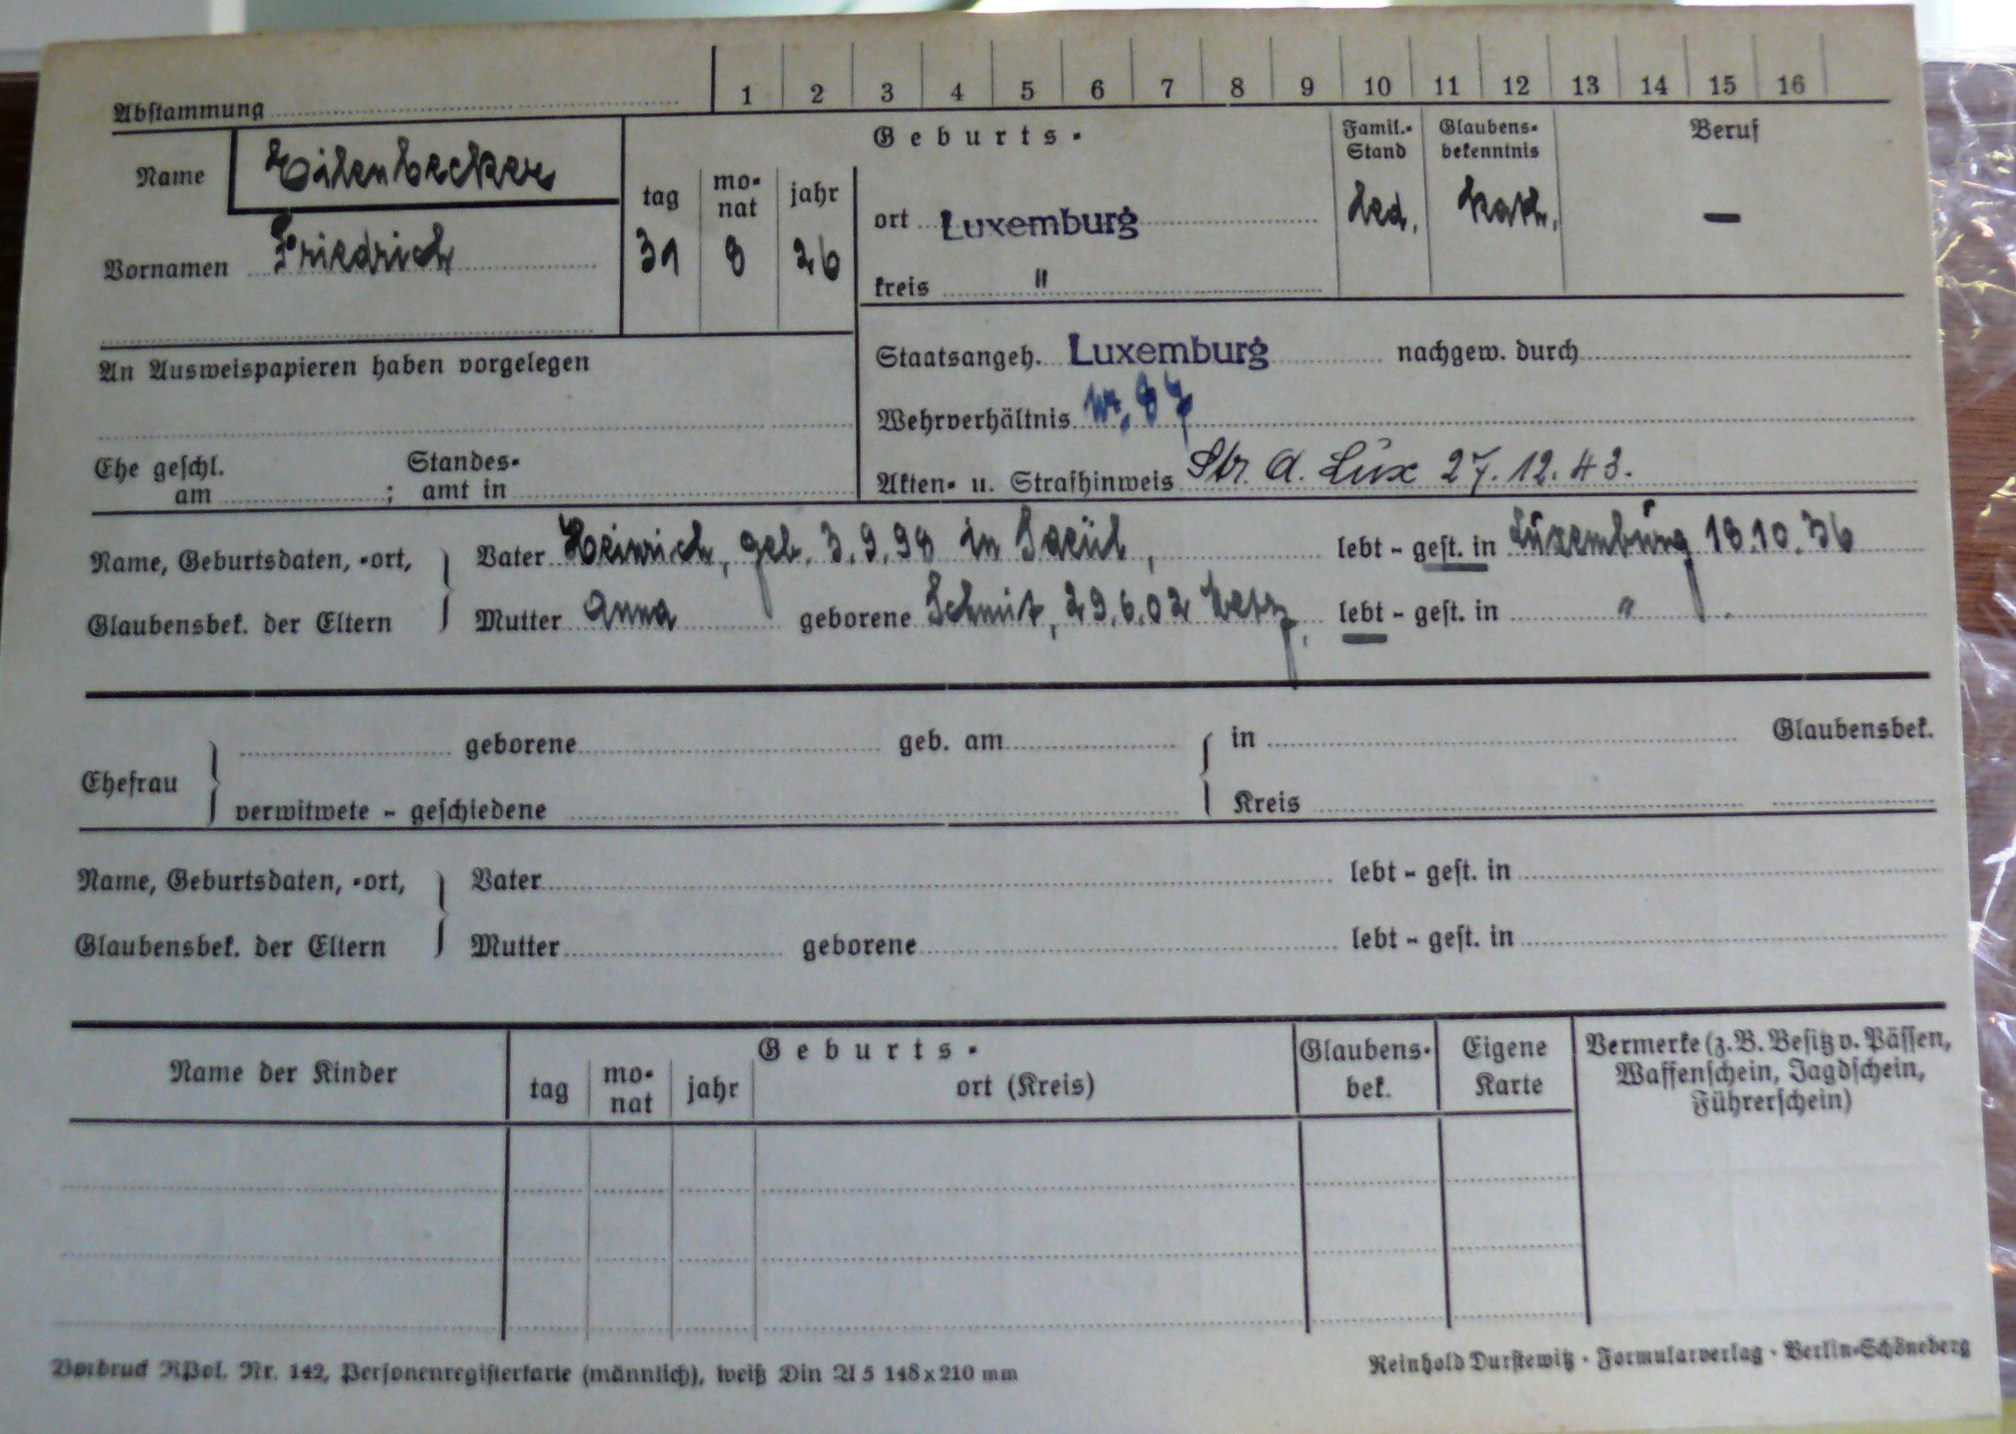 Abstammung 1 2 3 4 5 6 7 8 9 10 11 12 13 14 15 16
Name Eilenbecker
Vornamen Friedrich
Geburts-
tag monat jahr
31 8 26
ort Luxemburg
kreis "
Famil.-Stand
led.
Glaubensbekenntnis
kath.
Beruf
—
An Ausweispapieren haben vorgelegen
Staatsangeh. Luxemburg nachgew. durch
Wehrverhältnis W. 87
Ehe geschl. am ; Standesamt in
Akten- u. Strafhinweis Str. A. Lux 27.12.43.
Name, Geburtsdaten, -ort, Vater Heinrich, geb. 3.9.98 in Saeül, lebt - gest. in Luxemburg 18.10.36
Glaubensbek. der Eltern Mutter Anna geborene Schmit, 29.6.02 lebt - gest. in " .
geborene geb. am in Glaubensbek.
Ehefrau
verwitwete - geschiedene Kreis
Name, Geburtsdaten, -ort, Vater lebt - gest. in
Glaubensbek. der Eltern Mutter geborene lebt - gest. in
Name der Kinder
Geburts-
tag monat jahr ort (Kreis)
Glaubensbek.
Eigene Karte
Vermerke (z. B. Besitz v. Pässen,
Waffenschein, Jagdschein,
Führerschein)
Vordruck RPol. Nr. 142, Personenregisterkarte (männlich), weiß Din A 5 148 x 210 mm
Reinhold Durstewitz · Formularverlag · Berlin-Schöneberg